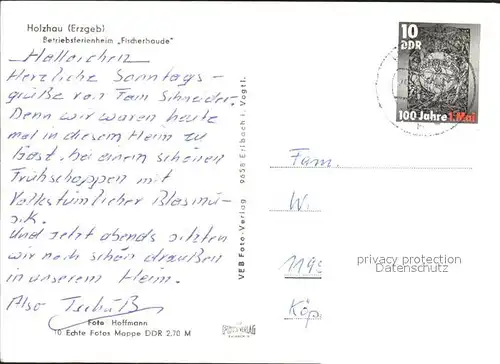 Holzhau (Erzgeb)
Betriebsferienheim „Fischerbaude"
Hallöichen
Herzliche Sonntags-
grüße von Fam Schneider.
Denn wir waren heute
mal in diesem Heim zu
Gast, bei einem schönen
Frühschoppen mit
Volkstümlicher Blasmu-
sik.
Und jetzt abends sitzten
wir noch schön draußen
in unserem Heim.
Also Tschüß
Foto Hoffmann
10 Echte Fotos Mappe DDR 2,70 M
VEB Foto-Verlag 9658 Erlbach i. Vogtl.
10
DDR
100 Jahre 1. Mai
Fam.
W.
1195
Köp
privacy protection
Datenschutz